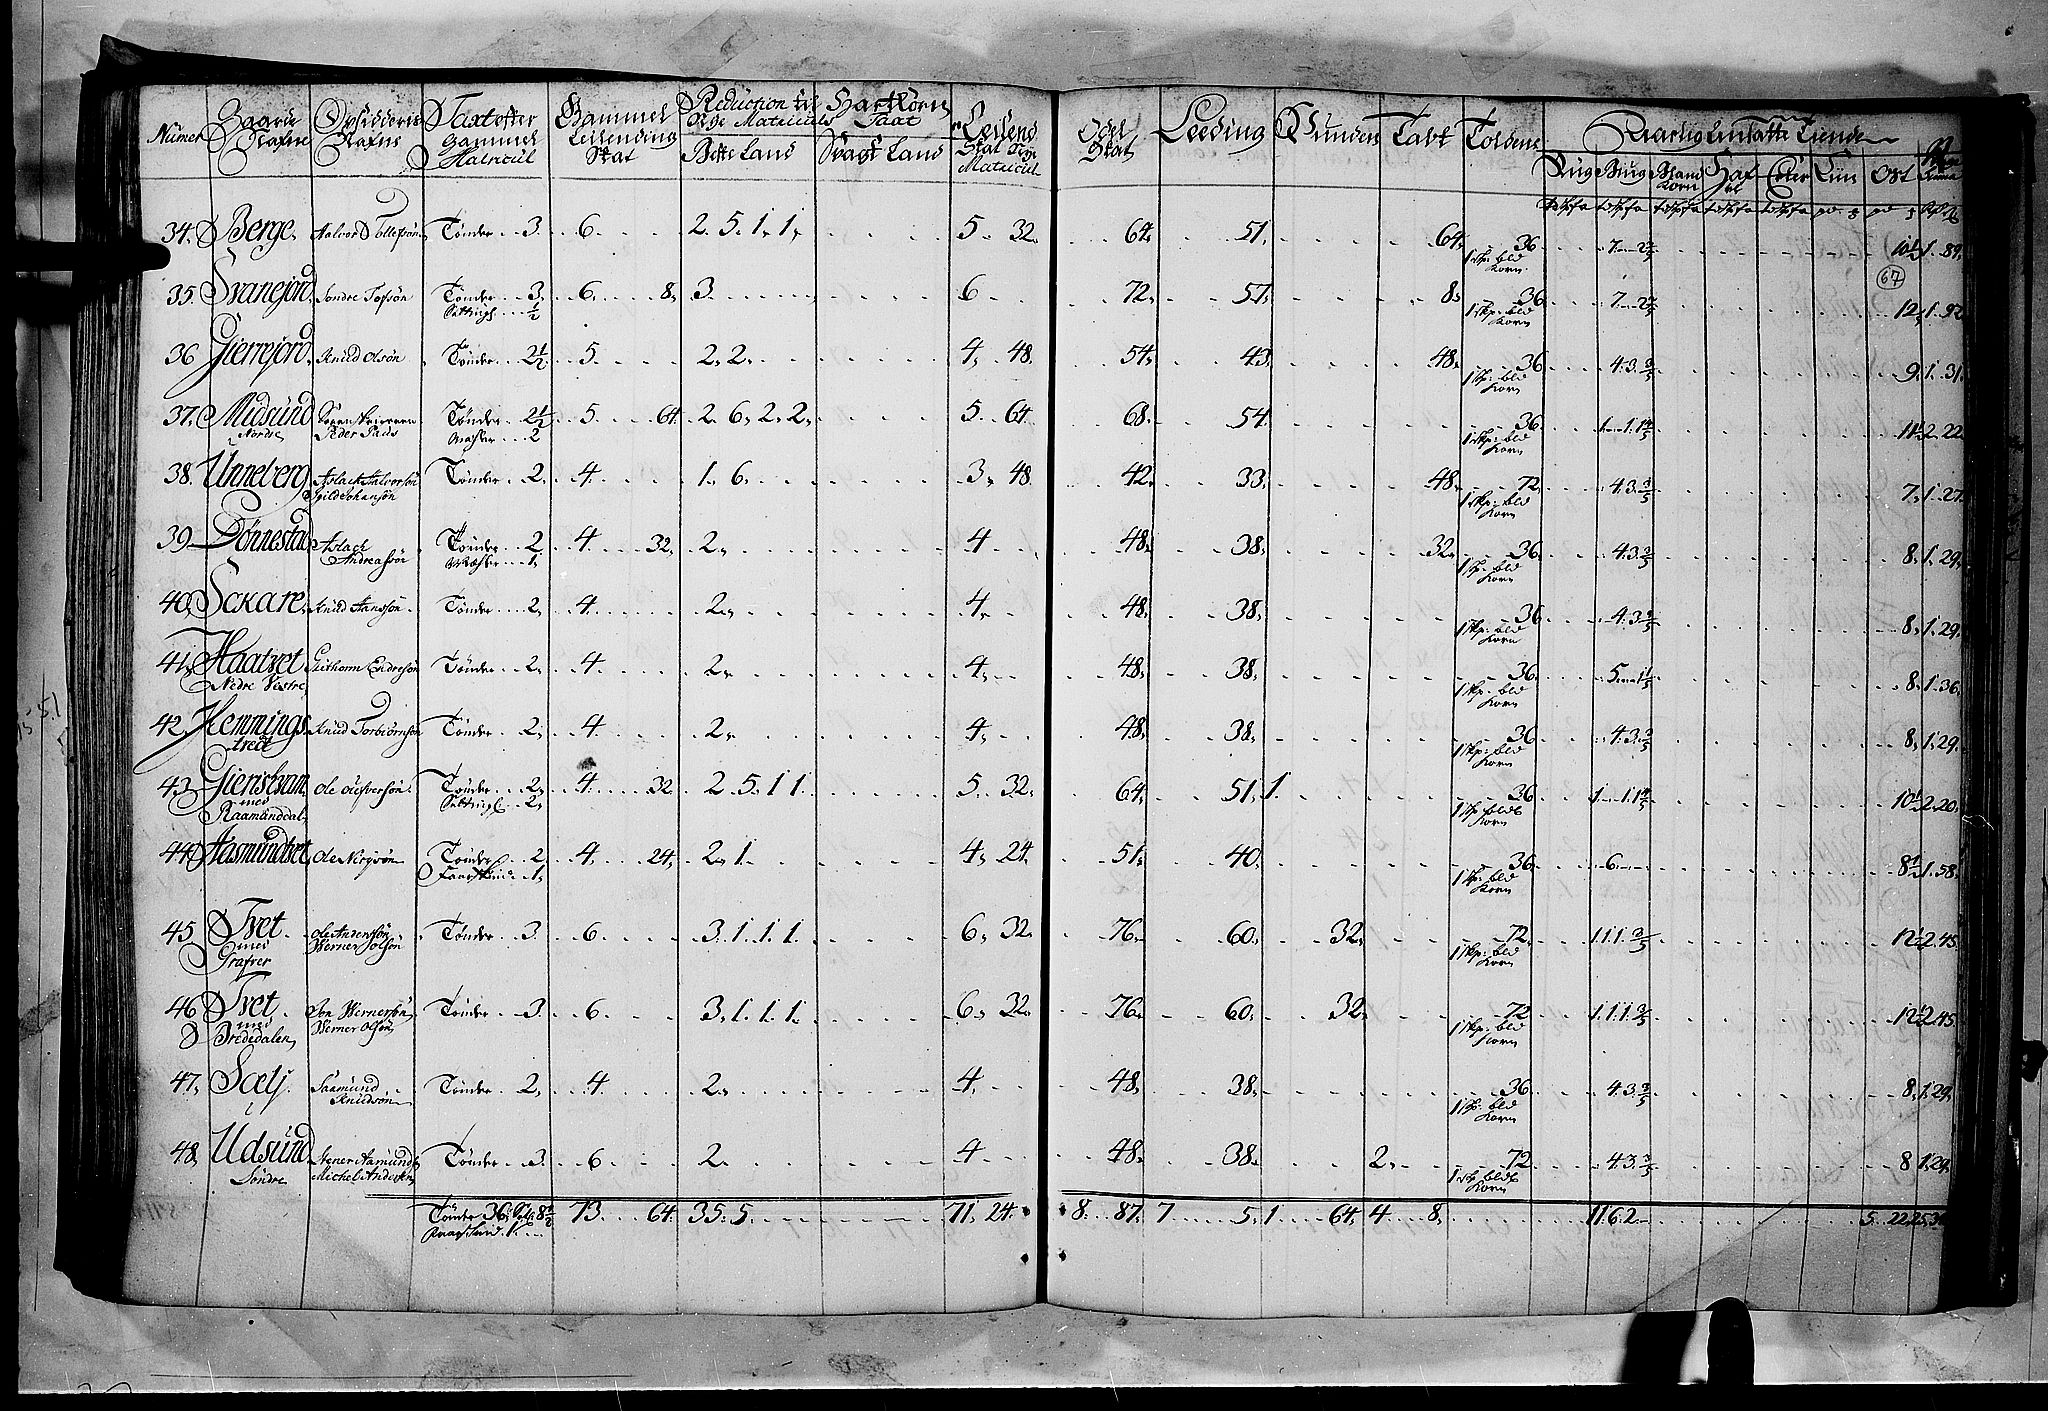 Numer Gaarde Nafne Opsidderis Nafne Taxt efter Gammel Matricul Gammel Leilending Skat Reduction til Hart Korn
Nye Matriculs Taxt
Beste Land Svagt Land Leilend Skat Nye Matricul Odel Skat Leeding Tabt Toldens Aarlig Ansatte Tiende
Rug Biug Bland Korn Haf Erter Liin Ost
34. Berge Halvor Tollefsøn Tønder 3. 6. 2. 5. 1. 1. 5. 32. 64. 51. 64. 36
1 Skp: bld Korn 7. 2 10½ 1. 89.
67
35. Svanejord Sondre Tofsøn Tønder 3. 6. 8. 3. 6 72. 57. 8. 36
Setting ½ 1 Skp: bld Korn 7. 12 1. 92
36 Gierrejord Knud Olsøn Tønder 2½ 5. 2. 2. 4. 48. 54. 43. 48. 36
1 Skp: bld Korn 4. 3. 3/5 9. 1. 31.
37. Midsund Tønder 2½ 5. 64. 2. 6. 2. 2. 5. 64. 68. 54. 36
Nordre Peder Tønder 2 1 Skp: bld Korn 1. 1. 1 4/5 11½ 2. 22.
38. Unneberg Aslack Halvorsøn Tønder 2. 4. 1. 6. 3. 48. 42. 33. 48. 72.
Gild Johansøn 1 Skp: bld Korn 4. 3. 3/5 7. 1. 27.
39 Dønnestad Aslack Tønder 2. 4. 32. 2. 4. 48. 38. 32. 36
Andreassøn 1. 1 Skp: bld Korn 4. 3. 3/5 8. 1. 29.
40. Sckare Knud Hanssøn Tønder 2. 4. 2. 4. 48. 38. 36
1 Skp: bld Korn 4. 3. 3/5 8. 1. 29.
41. Haatvet Guthorm Endresøn Tønder 2. 4. 2. 4. 48. 38. 36
Nedre Vestre 1 Skp: bld Korn 5. 1 1/5 8. 1. 36.
42. Hemmings Knud Torbiørnsøn Tønder 2. 4. 2. 4. 48. 38. 36
tvedt 1 Skp: bld Korn 4. 3. 3/5 8. 1. 29.
43. Gierisvam Ole Olefversøn Tønder 2. 4. 32. 2. 5. 1. 1. 5. 32. 64. 51. 1. 36
med Setting 2. 1 Skp: bldt Korn 1. 1. 1 4/5 10½ 2. 20.
Raamunddal
44. Aasmundset Ole Tønder 2. 4. 24. 2. 1. 4. 24. 51. 40. 36
Faarskind 1. 1 Skp: bld Korn 6. 8½ 1. 58.
45. Tvet Ole Anderssøn Tønder 3. 6. 3. 1. 1. 1. 6. 32. 76. 60. 32. 72.
med Werner Olsøn 1 Skp: bld Korn 1. 1. 1. 3/5 12½ 2. 45.
Grafver
46 Tvet Jon Wernersøn Tønder 3. 6. 3. 1. 1. 1. 6. 32. 76. 60. 32. 72
med Werner Olsøn 1 Skp: bld Korn 1. 1. 1. 3/5 12½ 2. 45.
Bredalen
47. Sælj Saamund Tønder 2. 4 2. 4. 48. 38. 36
Knudsøn 1 Skp: bld Korn 4. 3. 3/5 8. 1. 29.
48. Udsund Aamund Tønder 3. 6. 2. 4 48. 38. 2. 72
Søndre Michel Andersen 1 Skp bldt Korn 4. 3. 3/5 8 1. 29.
Tønder 36. 8½ 73. 64. 35. 5. 71. 24. 8. 87. 7 5. 1. 64. 4. 8. 11. 6. 2. 5. 22.